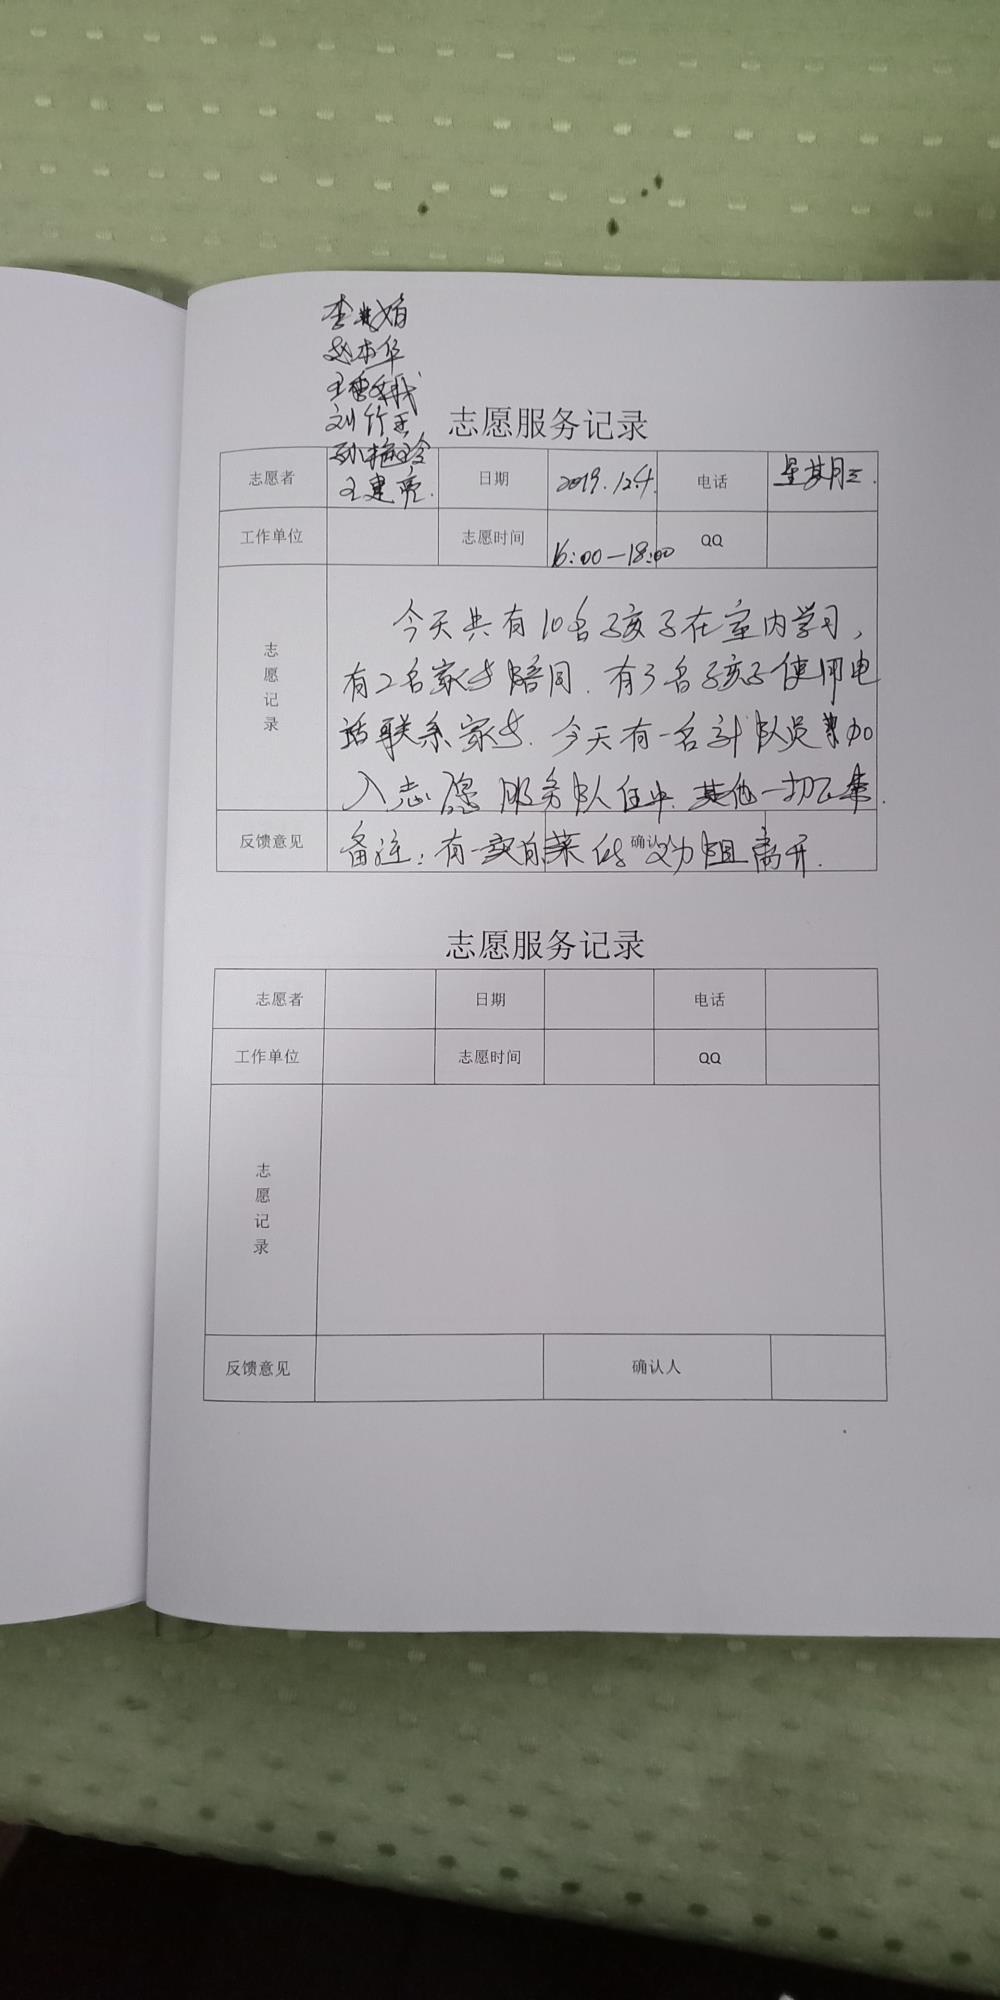 赵本华
刘竹玉
孙艳玲
王建亮.
志愿服务记录
志愿者 日期 2019.12.4. 电话 星期三.
工作单位 志愿时间 16:00—18:00 QQ
志愿记录
今天共有10名孩子在室内学习,
有2名家长陪同.有3名孩子使用电
话联系家长.今天有一名 队员 加
入志愿服务队伍中.其他一切正常.
反馈意见 确认
备注:有一卖白菜 劝阻离开.
志愿服务记录
志愿者 日期 电话
工作单位 志愿时间 QQ
志愿记录
反馈意见 确认人